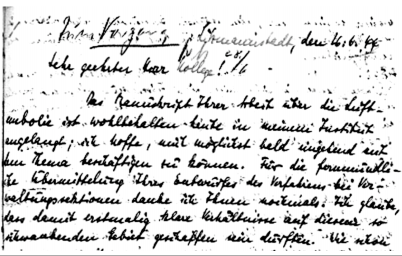 Hermannstadt, den 16.6.44
28/6
Sehr geehrter Herr Kollege!
Das Manuskript Ihrer Arbeit über die Luft-
embolie ist wohlbehalten heute in meinem Institut
angelangt, ich hoffe, mich möglichst bald eingehend mit
dem Thema beschäftigen zu können. Für die freundli-
che Übermittelung Ihres Entwurfes des Verfahrens bei Ver-
waltungssektionen danke ich Ihnen nochmals. Ich glaube,
dass damit erstmalig klare Verhältnisse auf diesem so
schwankenden Gebiet geschaffen sein dürften. Wie